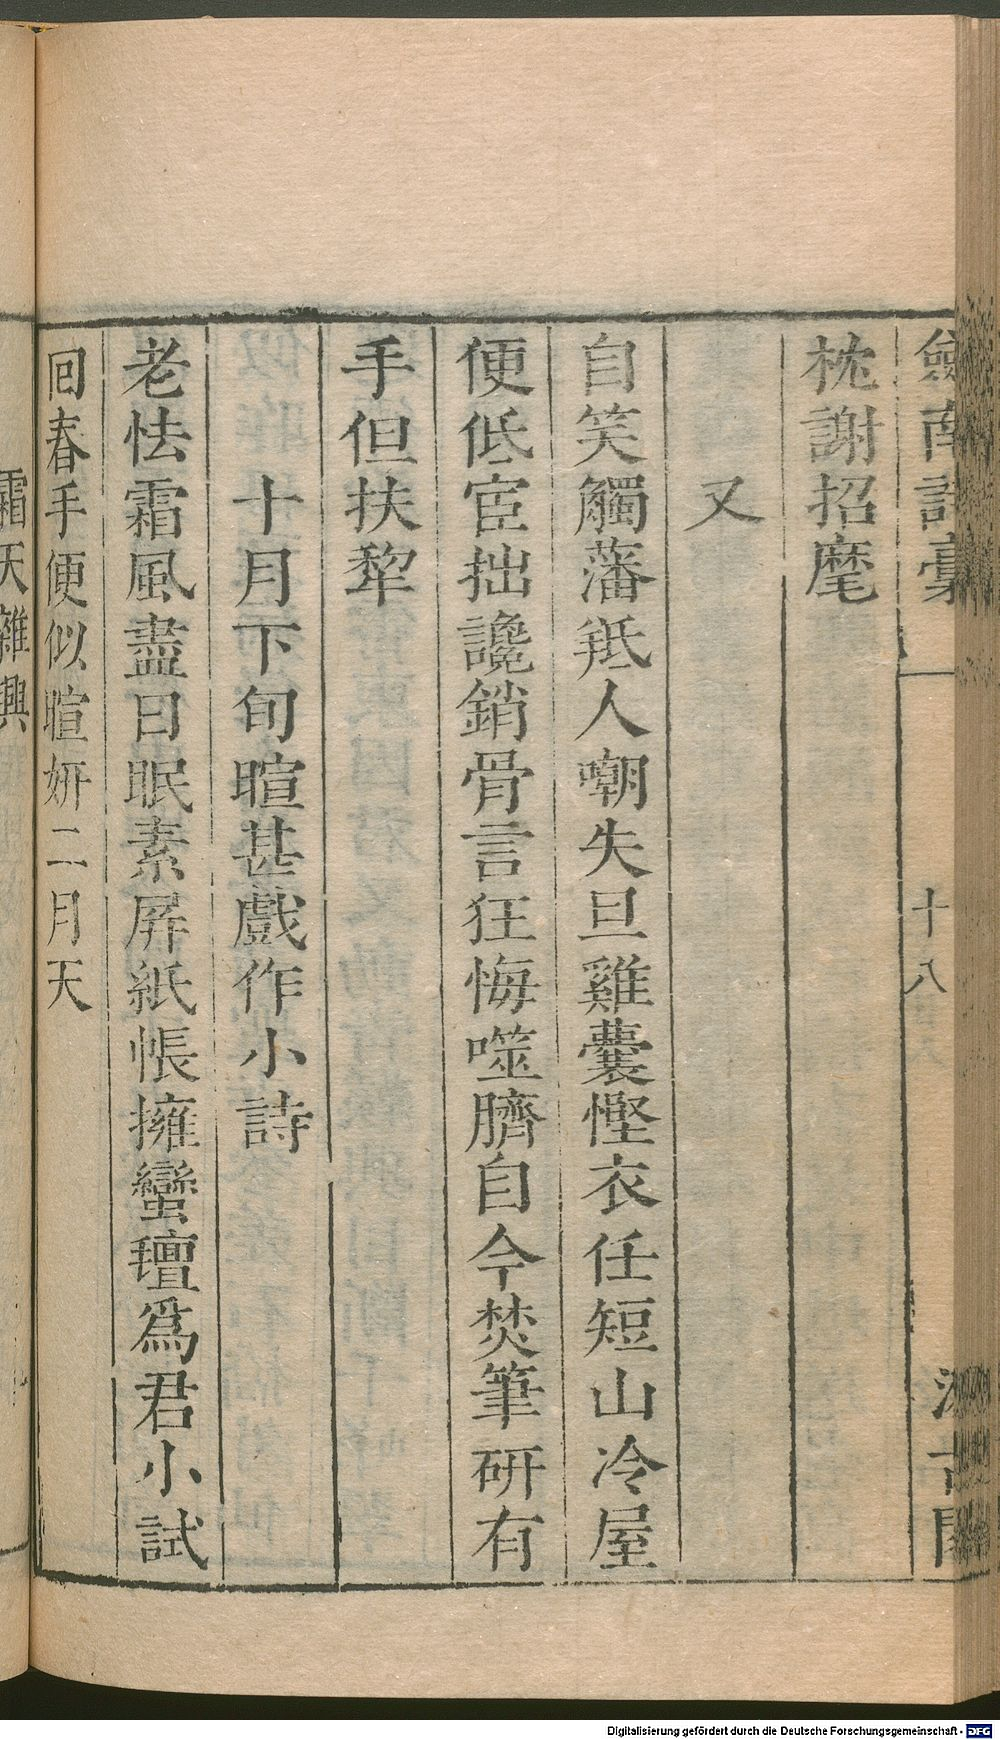 劔南詩稾 十八 汲古閣
枕謝招麾
又
自笑觸藩羝人嘲失旦雞囊慳衣任短山冷屋
便低宦拙讒銷骨言狂悔噬臍自今焚筆研有
手但扶犂
十月下旬暄甚戲作小詩
老怯霜風盡日眠素屏紙帳擁蠻氊爲君小試
回春手便似暄妍二月天
霜天雜興
Digitalisierung gefördert durch die Deutsche Forschungsgemeinschaft - DFG